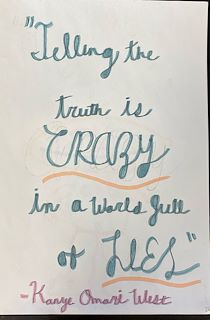 "Telling the
truth is
CRAZY
in a World full
of LIES"
-Kanye Omari West